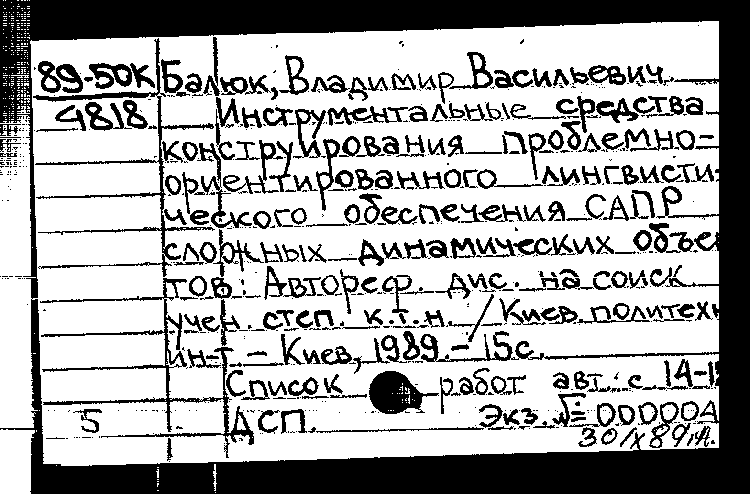 89-50К Балюк, Владимир Васильевич
4818 Инструментальные средства
конструирования проблемно-
ориентированного лингвисти-
ческого обеспечения САПР
сложных динамических объек
тов: Автореф. дис. на соиск.
учен. степ. к.т.н. / Киев. политехн
ин-т – Киев, 1989. – 15 с.
Список работ авт.: с. 14-15
5 ДСП. Экз. № 00000А
30/X 89